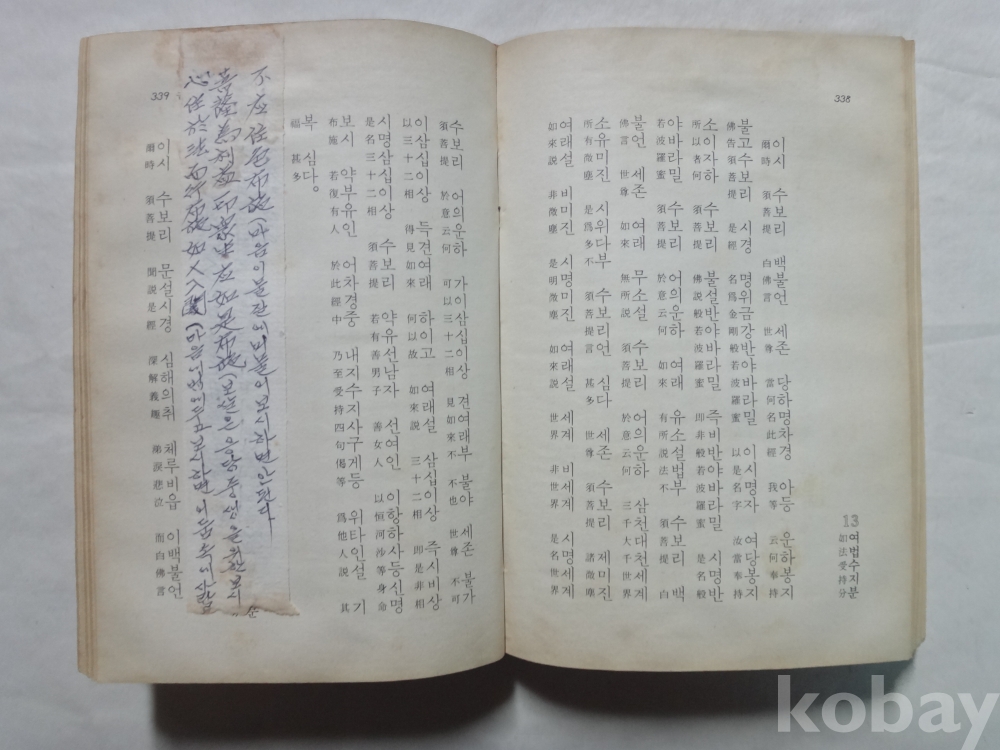 338
13 여법수지분
如法受持分
이시 수보리 백불언 세존 당하명차경 아등 운하봉지
爾時 須菩提 白佛言 世尊 當何名此經 我等 云何奉持
불고수보리 시경 명위금강반야바라밀 이시명자 여당봉지
佛告須菩提 是經 名爲金剛般若波羅蜜 以是名字 汝當奉持
소이자하 수보리 불설반야바라밀 즉비반야바라밀 시명반
所以者何 須菩提 佛說般若波羅蜜 即非般若波羅蜜 是名般
야바라밀 수보리 어의운하 여래 유소설법부 수보리 백
若波羅蜜 須菩提 於意云何 如來 有所說法不 須菩提 白
불언 세존 여래 무소설 수보리 어의운하 삼천대천세계
佛言 世尊 如來 無所說 須菩提 於意云何 三千大千世界
소유미진 시위다부 수보리언 심다 세존 수보리 제미진
所有微塵 是爲多不 須菩提言 甚多 世尊 須菩提 諸微塵
여래설 비미진 시명미진 여래설 세계 비세계 시명세계
如來說 非微塵 是明微塵 如來說 世界 非世界 是名世界
수보리 어의운하 가이삼십이상 견여래부 불야 세존 불가
須菩提 於意云何 可以三十二相 見如來不 不也 世尊 不可
이삼십이상 득견여래 하이고 여래설 삼십이상 즉시비상
以三十二相 得見如來 何以故 如來說 三十二相 即是非相
시명삼십이상 수보리 약유선남자 선여인 이항하사등신명
是名三十二相 須菩提 若有善男子 善女人 以恒河沙等身命
보시 약부유인 어차경중 내지수지사구게등 위타인설 기
布施 若復有人 於此經中 乃至受持四句偈等 爲他人說 其
복 심다.
福 甚多
不応住色布施(마음이 물질에 머물어 보시하면 안된다
菩薩為利益 切衆生 応如是布施(보살은 응당 중생을 위한 보시
心住於法而行布施 如人入闇(마음이 법에 보시하면 어둠속에
339
이시 수보리 문설시경 심해의취 체루비읍 이백불언
爾時 須菩提 聞說是經 深解義趣 涕淚悲泣 而白佛言
kobay